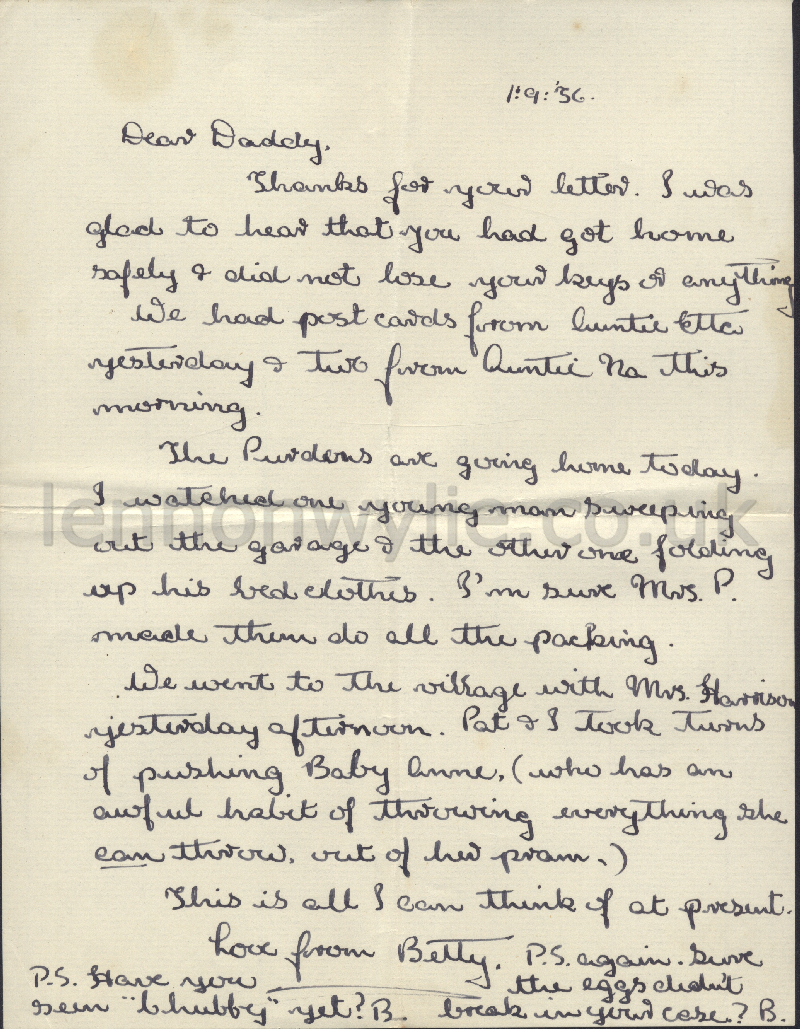 1:9:'36.
Dear Daddy,
Thanks for your letter. I was
glad to hear that you had got home
safely & did not lose your keys or anything
We had post cards from Auntie Etta
yesterday & two from Auntie Na this
morning.
The Purdons are going home today.
I watched one young man sweeping
out the garage & the other one folding
up his bed clothes. I'm sure Mrs. P.
made them do all the packing.
We went to the village with Mrs. Harrison
yesterday afternoon. Pat & I took turns
of pushing Baby Anne, (who has an
awful habit of throwing everything she
can throw, out of her pram.)
This is all I can think of at present.
Love from Betty.
P.S. Have you
seen "Chubby" yet? B.
P.S. again. Sure
the eggs didn't
break in your case? B.
lennonwylie.co.uk